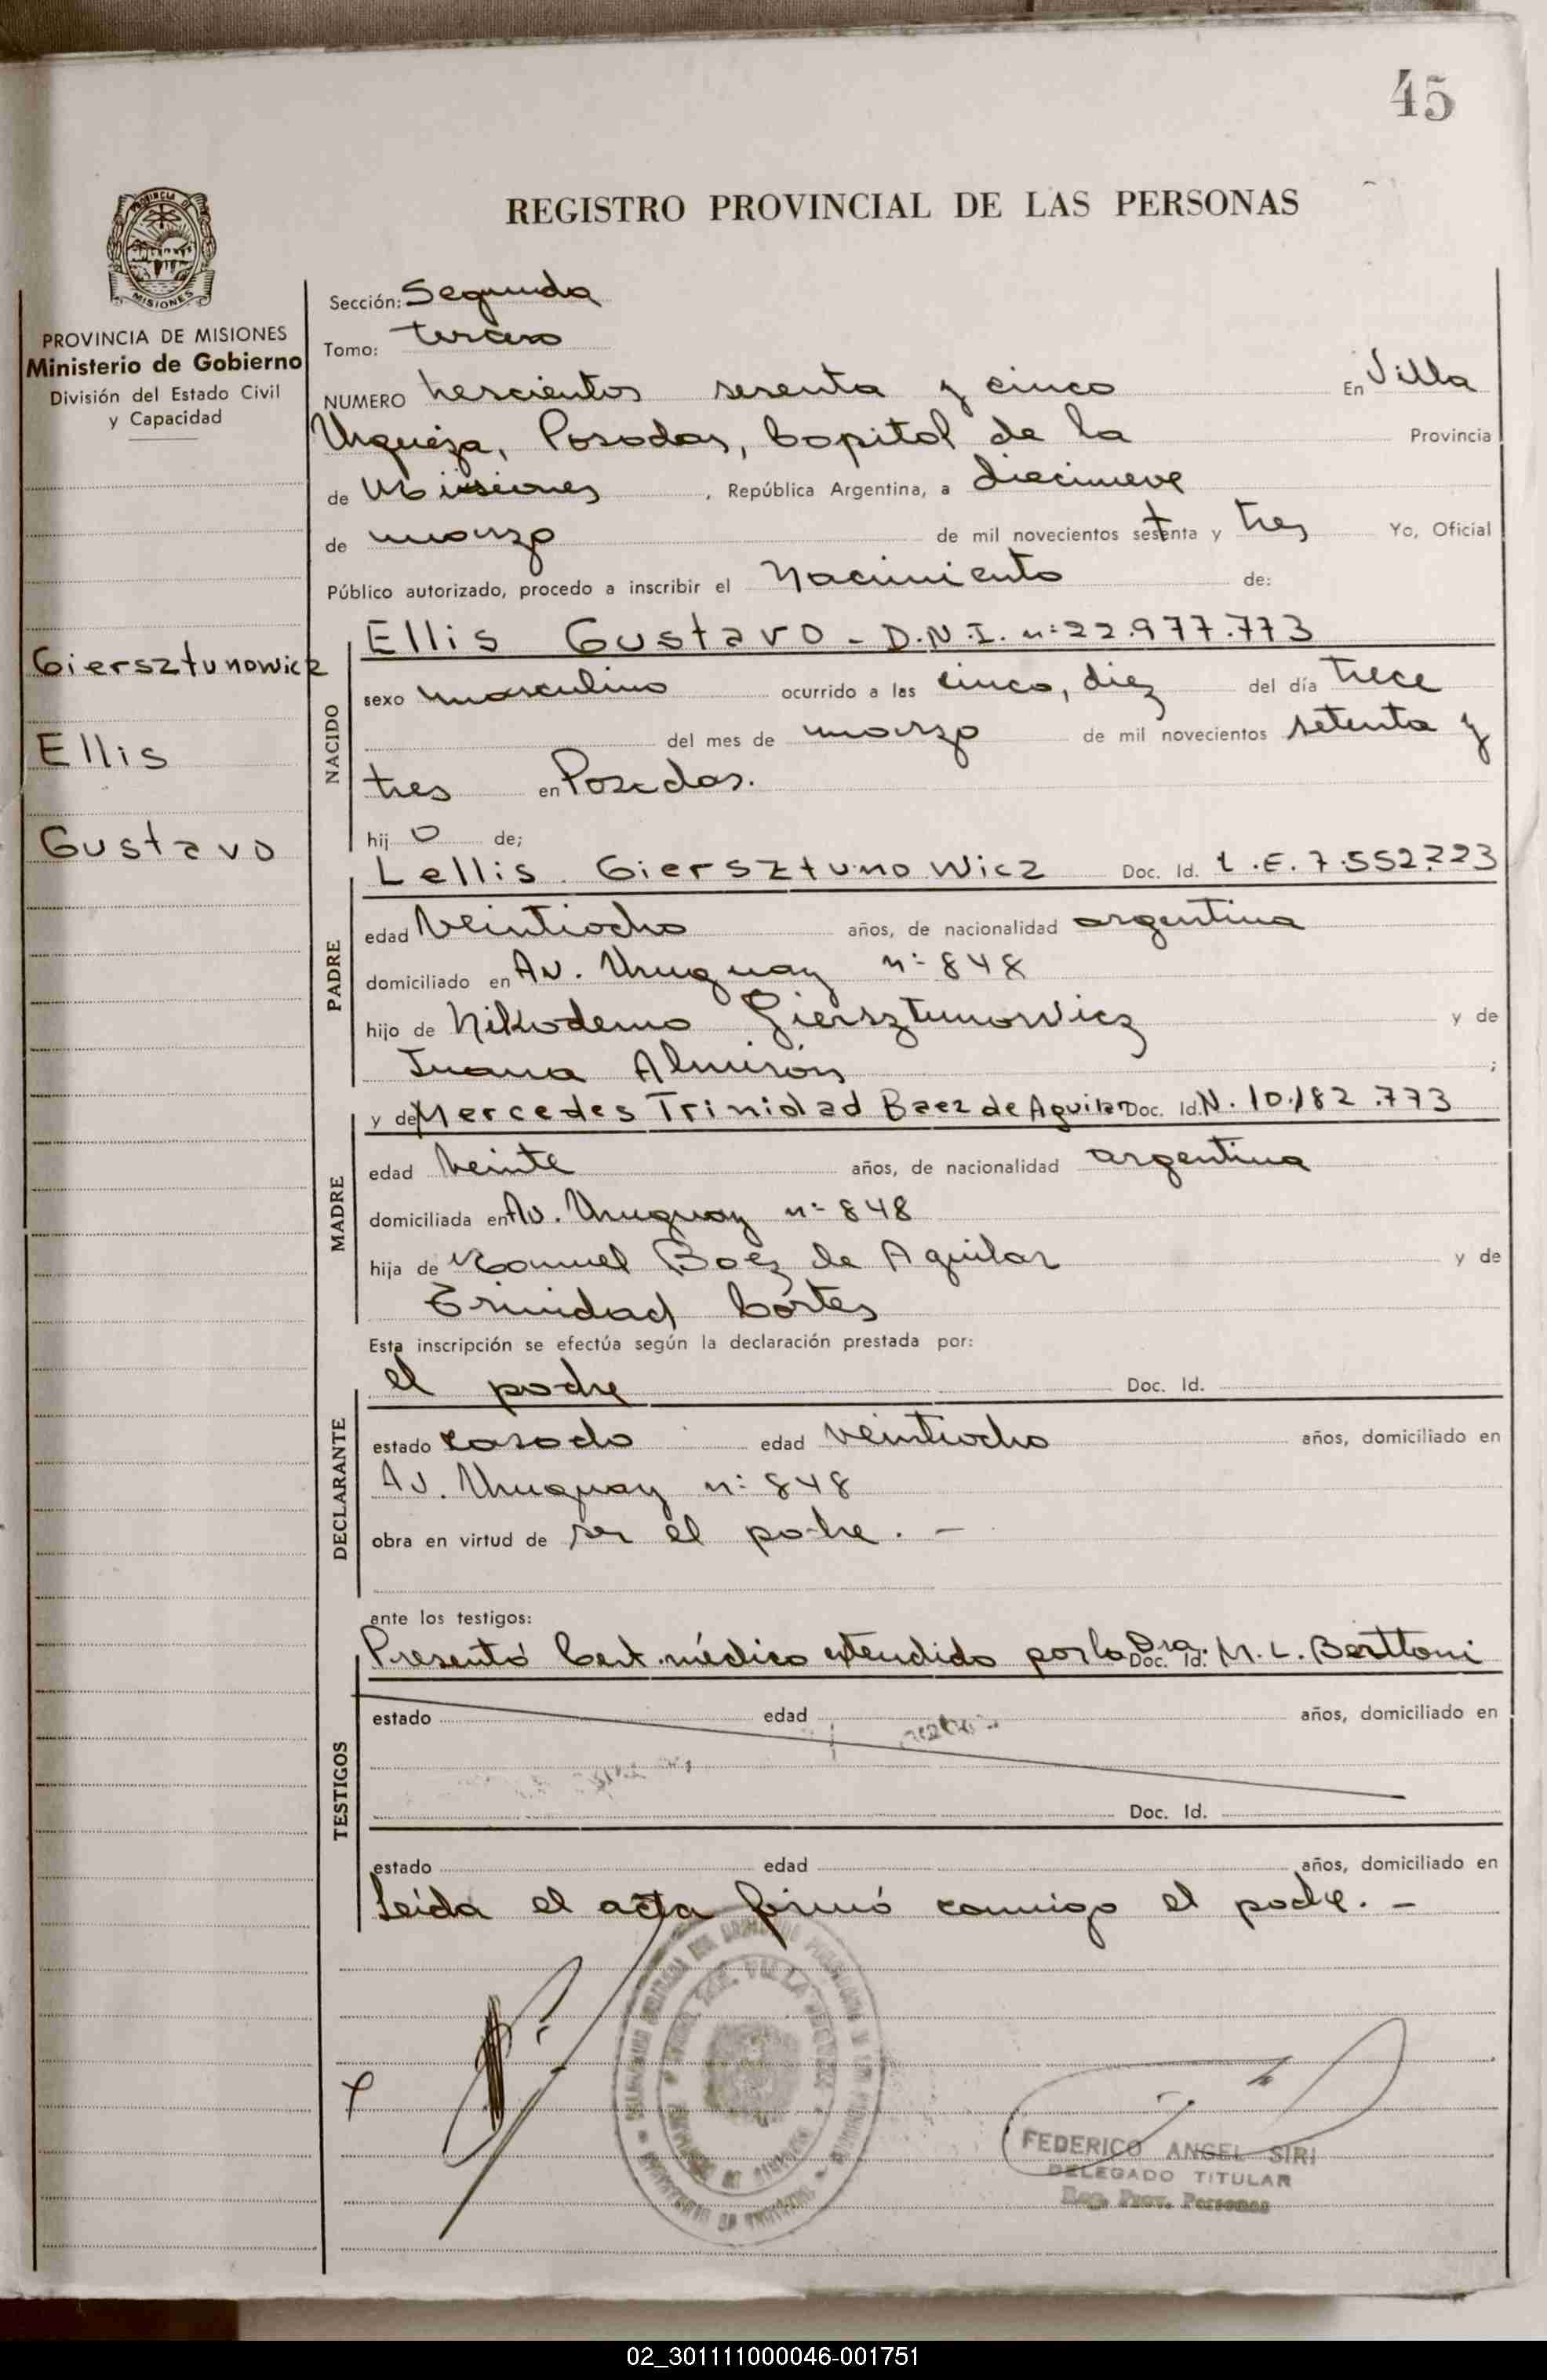 45
REGISTRO PROVINCIAL DE LAS PERSONAS
PROVINCIA DE
MISIONES
PROVINCIA DE MISIONES
Ministerio de Gobierno
División del Estado Civil
y Capacidad
Giersztunowicz
Ellis
Gustavo
Sección: Segunda
Tomo: tercero
NUMERO trescientos sesenta y cinco En Villa
Urquiza, Posadas, Capital de la Provincia
de Misiones, República Argentina, a diecinueve
de marzo de mil novecientos setenta y tres Yo, Oficial
Público autorizado, procedo a inscribir el Nacimiento de:
NACIDO
Ellis Gustavo - D.N.I. nº 22.977.773
sexo masculino ocurrido a las cinco, diez del día trece
del mes de marzo de mil novecientos setenta y
tres en Posadas.
hijo de;
PADRE
Lellis Giersztunowicz Doc. Id. L.E. 7.552.223
edad veintiocho años, de nacionalidad argentina
domiciliado en Av. Uruguay nº 848
hijo de Nikodemo Giersztunowicz y de
Juana Almirón ;
MADRE
y de Mercedes Trinidad Baez de Aguilar Doc. Id. N. 10.182.773
edad veinte años, de nacionalidad argentina
domiciliada en Av. Uruguay nº 848
hija de Manuel Baez de Aguilar y de
Trinidad Cortes
Esta inscripción se efectúa según la declaración prestada por:
DECLARANTE
el padre Doc. Id.
estado casado edad veintiocho años, domiciliado en
Av. Uruguay nº 848
obra en virtud de ser el padre. -
ante los testigos:
TESTIGOS
Presentó Cert. médico extendido por la Dra. Doc. Id. M. L. Berttoni
estado edad años, domiciliado en
Doc. Id.
estado edad años, domiciliado en
Leída el acta firmó conmigo el padre. -
FEDERICO ANGEL SIRI
DELEGADO TITULAR
Reg. Prov. Personas
02_301111000046-001751